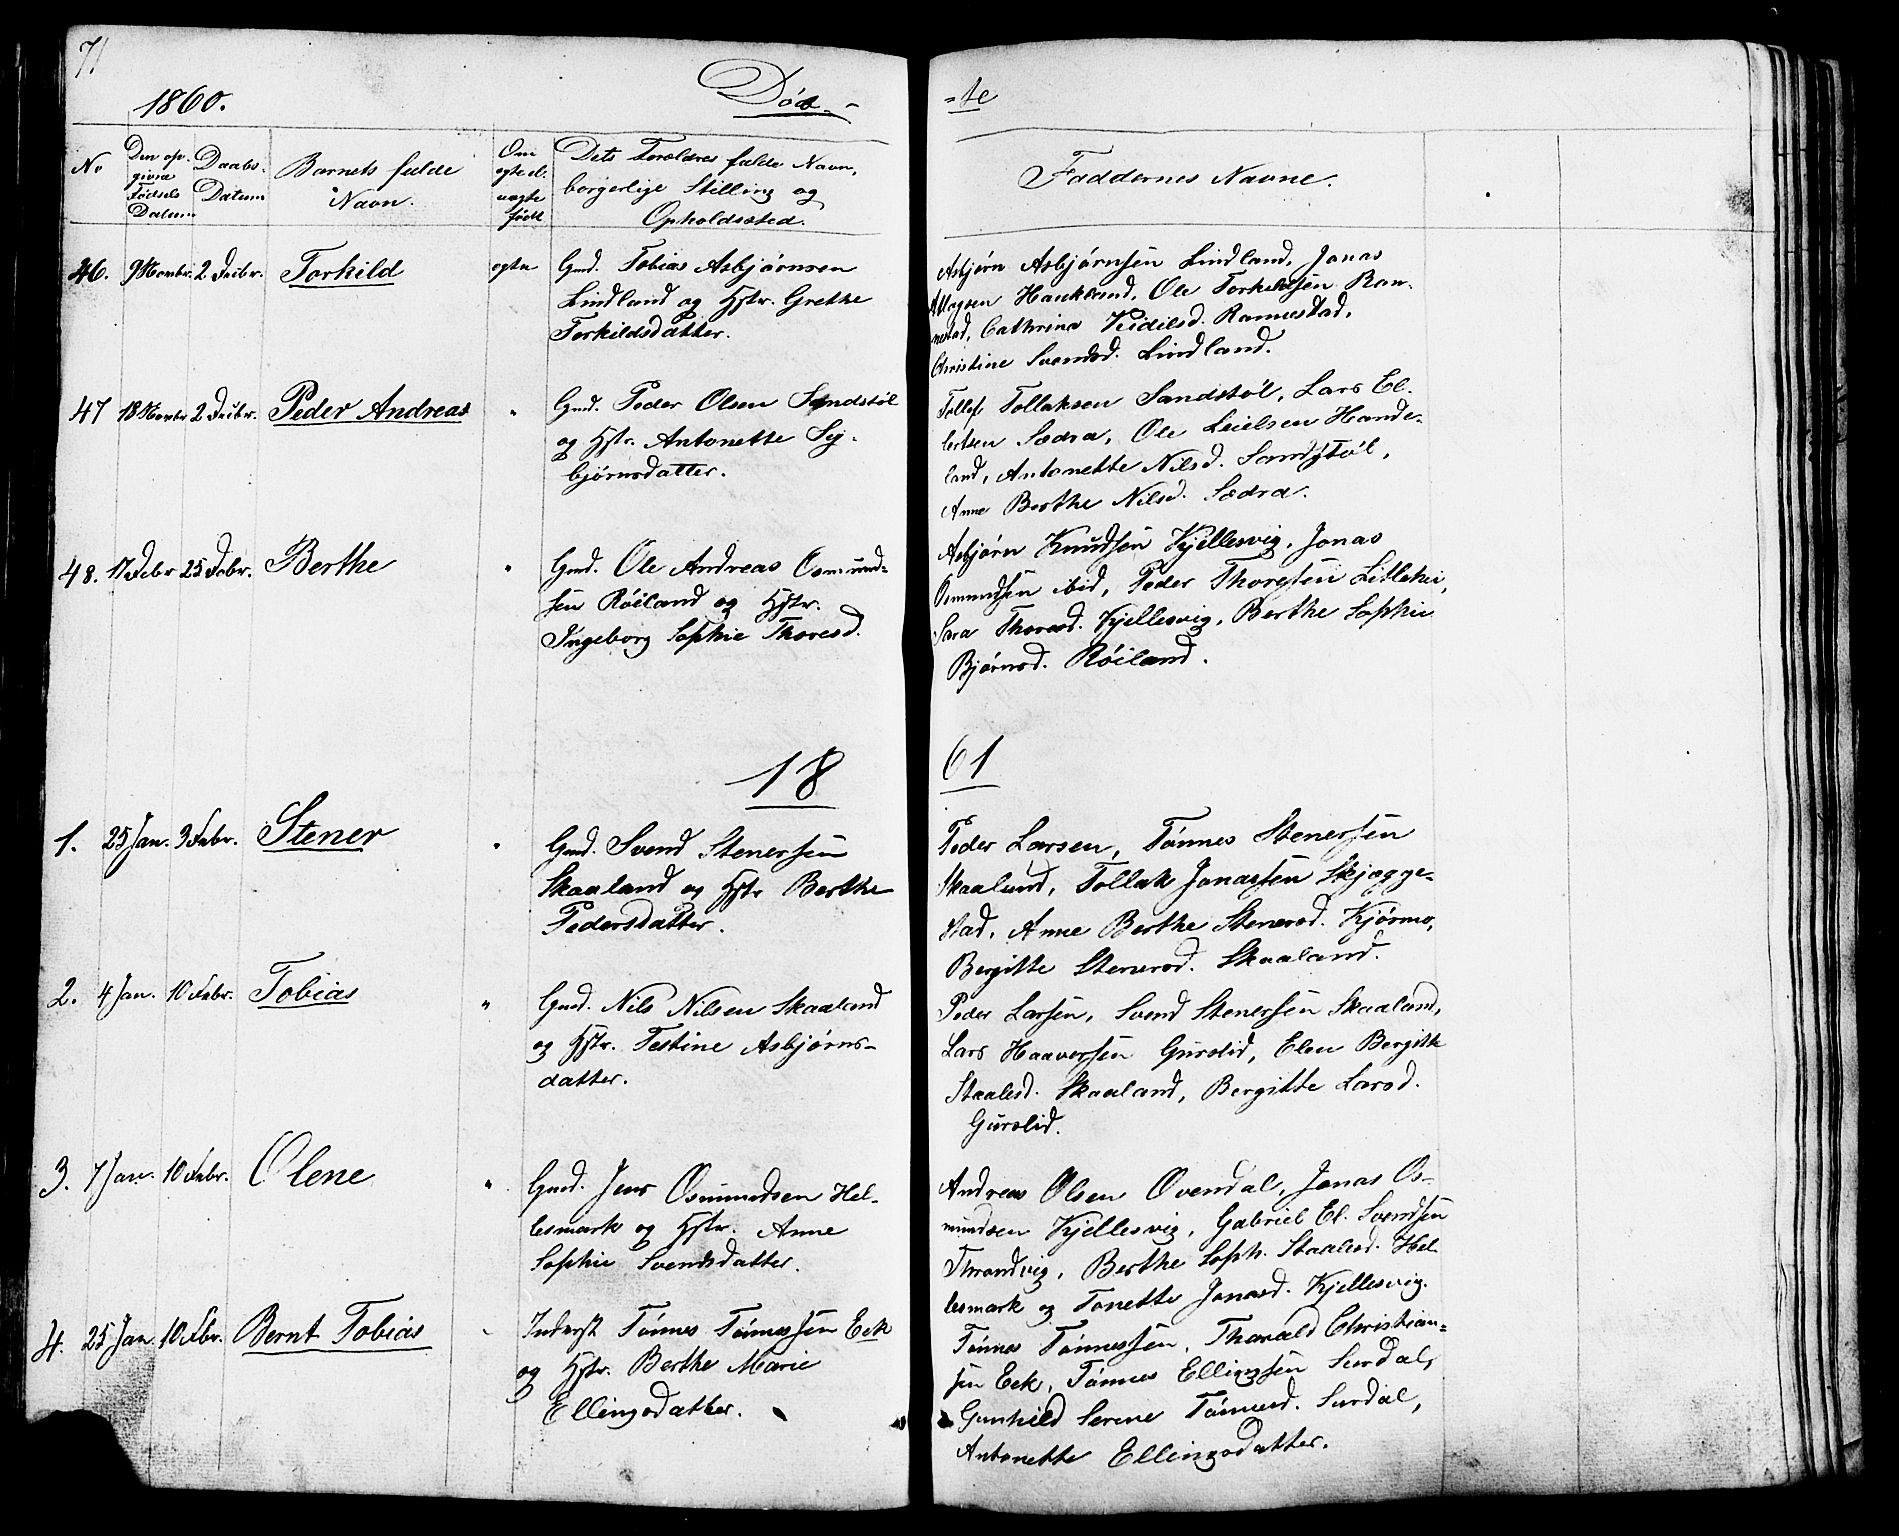 71
1860.
Døb-
=te
No
Den op-
givne
Fødsels
Datum
Daabs-
Datum
Barnets fulde
Navn.
Om
ægte el.
uægte
født
Dets Forældres fulde Navn,
borgerlige Stilling og
Opholdssted.
Faddernes Navne.
46. 9 Novbr. 2 Decbr. Torkild ægte Gmd. Tobias Asbjørnsen
Lindland og Hstr. Grethe
Torkildsdatter.
Asbjørn Asbjørnsen Lindland, Jonas
Atlagsen Haukland, Ole Torkildsen Ram-
nestad, Cathrine Keidelsd. Ramnestad,
Christine Svendsd. Lindland.
47 18 Novbr 2 Decbr. Peder Andreas " Gmd. Peder Olsen Sandstøl
og Hstr. Antonette Sy-
bjørnsdatter.
Tollef Tollaksen Sandstøl, Lars El-
lertsen Sædra, Ole Leielsen Hande-
land, Antonette Nilsd. Sandstøl,
Anne Berthe Nilsd. Sædra.
48. 17 Febr 25 Febr. Berthe " Gmd. Ole Andreas Osmund-
sen Røiland og Hstr.
Ingeborg Sophie Thoresd.
Asbjørn Knudsen Kjellesvig, Jonas
Osmundsen ibid, Peder Thorsen Litlehei,
Sara Thoresd. Kjellesvig, Berthe Sophie
Bjørnsd. Røiland.
18
61
1. 25 Jan. 3 Febr. Stener " Gmd. Svend Stenersen
Skaaland og Hstr Berthe
Pedersdatter.
Peder Larsen, Tønnes Stenersen
Skaaland, Tollak Jonassen Skjægge-
stad, Anne Berthe Stenersd. Kjørmo,
Bergitte Stenersd. Skaaland.
2. 4 Jan. 10 Febr. Tobias " Gmd. Nils Nilsen Skaaland
og Hstr. Testine Asbjørns-
datter.
Peder Larsen, Svend Stenersen Skaaland,
Lars Haaversen Gurslid, Elen Bergitte
Staalesd. Skaaland, Bergitte Larsd.
Gurslid.
3. 7 Jan. 10 Febr. Olene " Gmd. Jens Osmundsen Hel-
lesmark og Hstr. Anne
Sophie Svendsdatter.
Andreas Olsen Ovendal, Jonas Os-
mundsen Kjellesvig, Gabriel El. Svendsen
Throndvig, Berthe Soph. Staalesd. Hel-
lesmark og Tonette Jonasd. Kjellesvig.
4. 25 Jan. 10 Fbr. Bernt Tobias " Inderst Tønnes Tønnessen Eek
og Hstr. Berthe Marie
Ellingsdatter.
Tønnes Tønnessen, Tharald Christian=
sen Eek, Tønnes Ellingsen Surdal,
Gunhild Serine Tønnesd. Surdal,
Antonette Ellingsdatter.